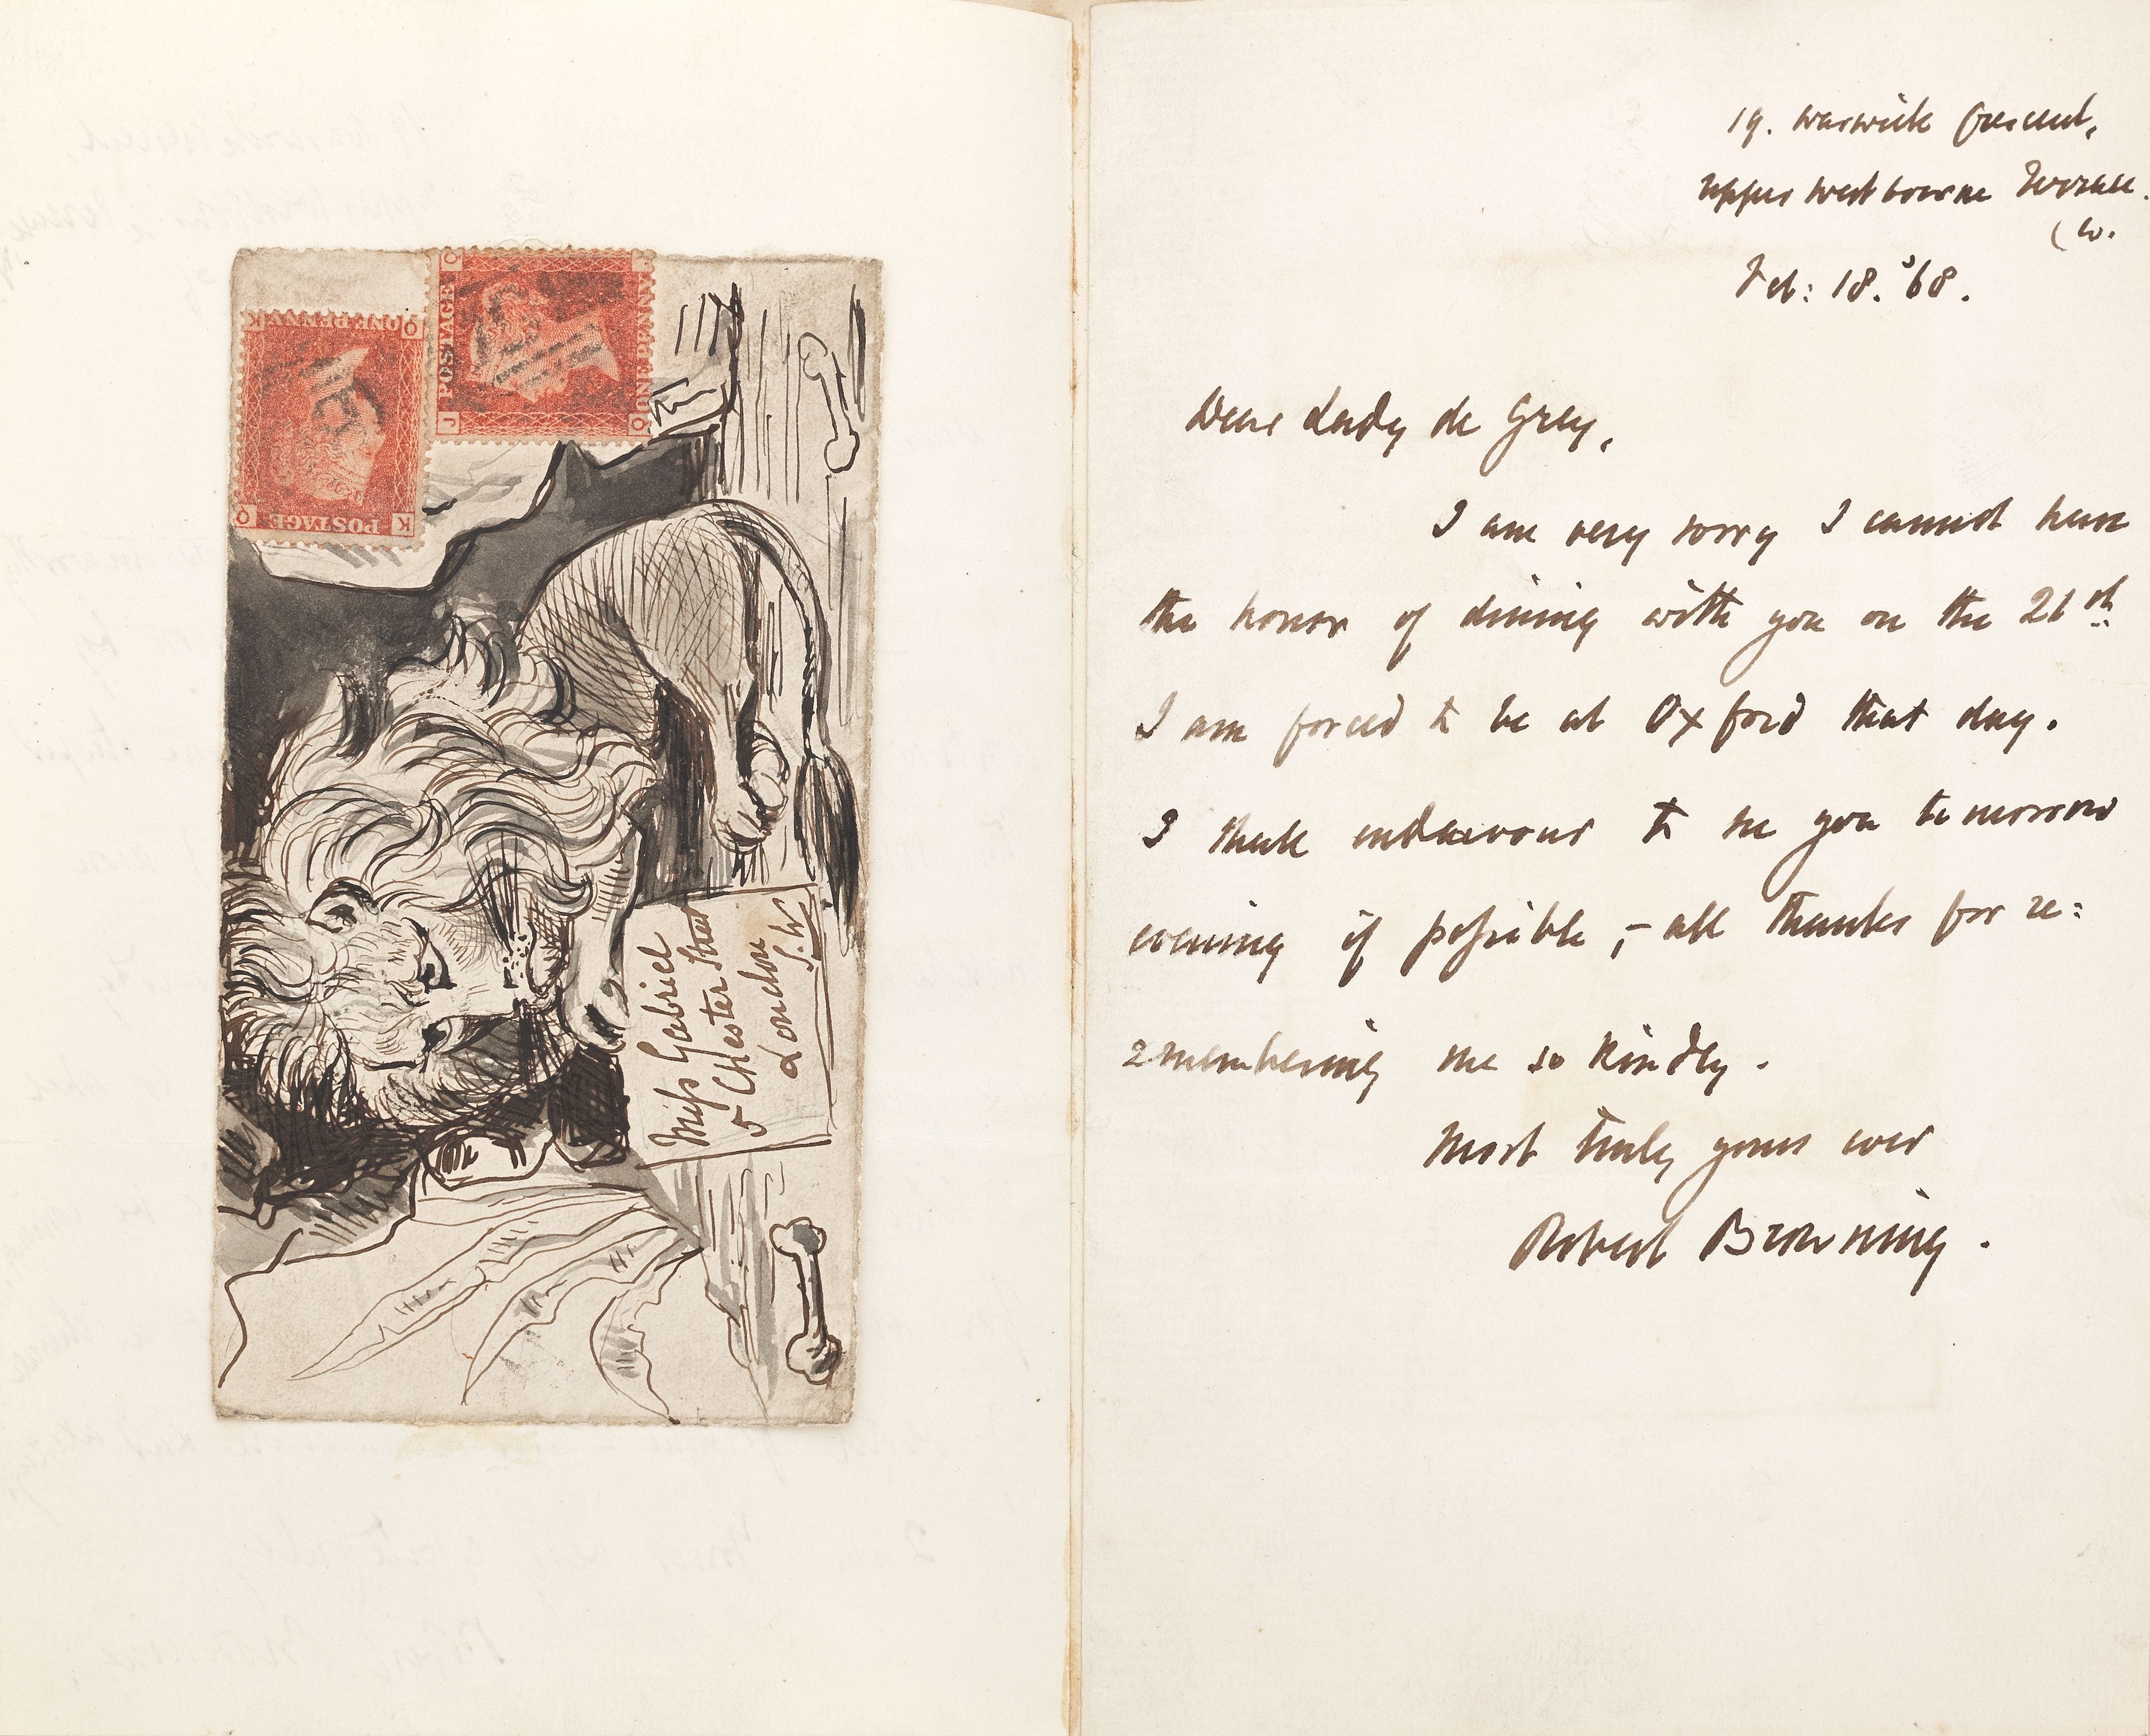 POSTAGE
ONE PENNY
K
Q
Q
K
POSTAGE
ONE PENNY
J
Q
Q
Miss Gabriel
5 Chester Street
London
S.W
19. Warwick Crescent,
Upper Westbourne Terrace.
(W.
Feb: 18. '68.
Dear Lady de Grey,
I am very sorry I cannot have
the honor of dining with you on the 21st.
I am forced to be at Oxford that day.
I shall endeavour to see you tomorrow
evening if possible, – all thanks for re:
:membering me so kindly.
Most truly yours ever
Robert Browning.